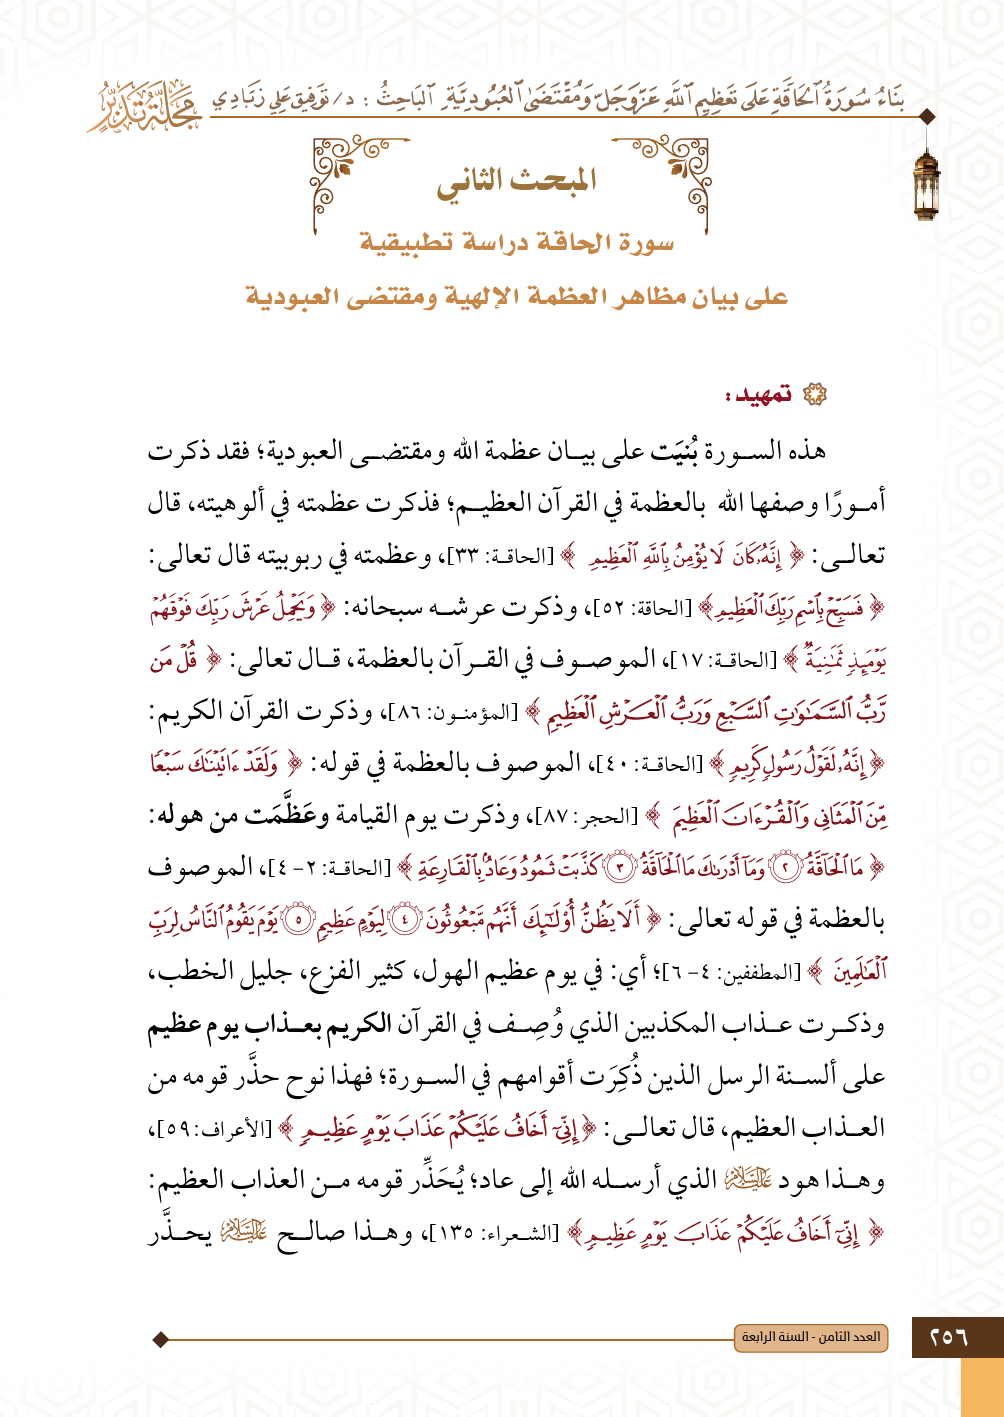 بِنَاءُ سُورَةُ الْحَاقَّةِ عَلَى تَعْظِيمِ اللَّهِ عَزَّ وَجَلّ وَمُقْتَضَى الْعُبُودِيَّةِ. الْبَاحِثُ : د/ تَوْفِيق عَلِي زَبَادِي
مجلة تدبر
المبحث الثاني
سورة الحاقة دراسة تطبيقية
على بيان مظاهر العظمة الإلهية ومقتضى العبودية
تمهيد :
هذه السـورة بُنيَت على بيـان عظمة الله ومقتضـى العبودية؛ فقد ذكرت
أمـورًا وصفها الله بالعظمة في القرآن العظيـم؛ فذكرت عظمته في ألوهيته، قال
تعالـى: ﴿ إِنَّهُۥ كَانَ لَا يُؤْمِنُ بِٱللَّهِ ٱلْعَظِيمِ ﴾ [الحاقـة: ٣٣]، وعظمته في ربوبيته قال تعالى:
﴿ فَسَبِّحْ بِٱسْمِ رَبِّكَ ٱلْعَظِيمِ﴾ [الحاقة: ٥٢]، وذكرت عرشـه سبحانه: ﴿ وَيَحْمِلُ عَرْشَ رَبِّكَ فَوْقَهُمْ
يَوْمَئِذٍ ثَمَٰنِيَةٌ ﴾ [الحاقـة: ١٧]، الموصـوف في القـرآن بالعظمة، قـال تعالى: ﴿ قُلْ مَن
رَّبُّ ٱلسَّمَٰوَٰتِ ٱلسَّبْعِ وَرَبُّ ٱلْعَرْشِ ٱلْعَظِيمِ ﴾ [المؤمنـون: ٨٦]، وذكرت القرآن الكريم:
﴿ إِنَّهُۥ لَقَوْلُ رَسُولٍ كَرِيمٍ ﴾ [الحاقـة: ٤٠]، الموصوف بالعظمة في قوله: ﴿ وَلَقَدْ ءَاتَيْنَٰكَ سَبْعًا
مِّنَ ٱلْمَثَانِى وَٱلْقُرْءَانَ ٱلْعَظِيمَ ﴾ [الحجر: ٨٧]، وذكرت يوم القيامة وعَظَّمَت من هوله:
﴿ مَا ٱلْحَآقَّةُ ٢ وَمَآ أَدْرَىٰكَ مَا ٱلْحَآقَّةُ ٣ كَذَّبَتْ ثَمُودُ وَعَادٌۢ بِٱلْقَارِعَةِ ﴾ [الحاقـة: ٢- ٤]، الموصوف
بالعظمة في قوله تعالى: ﴿ أَلَا يَظُنُّ أُوْلَٰٓئِكَ أَنَّهُم مَّبْعُوثُونَ ٤ لِيَوْمٍ عَظِيمٍ ٥ يَوْمَ يَقُومُ ٱلنَّاسُ لِرَبِّ
ٱلْعَٰلَمِينَ ﴾ [المطففين: ٤- ٦]؛ أي: في يوم عظيم الهول، كثير الفزع، جليل الخطب،
وذكـرت عـذاب المكذبين الذي وُصِـف في القرآن الكريم بعـذاب يوم عظيم
على ألسـنة الرسل الذين ذُكِرَت أقوامهم في السـورة؛ فهذا نوح حذَّر قومه من
العـذاب العظيم، قال تعالـى: ﴿إِنِّىٓ أَخَافُ عَلَيْكُمْ عَذَابَ يَوْمٍ عَظِيمٍ ﴾ [الأعراف: ٥٩]،
وهـذا هود عليه السلام الذي أرسـله الله إلى عاد؛ يُحَذِّر قومه مـن العذاب العظيم:
﴿ إِنِّىٓ أَخَافُ عَلَيْكُمْ عَذَابَ يَوْمٍ عَظِيمٍ﴾ [الشـعراء: ١٣٥]، وهـذا صالـح عليه السلام يحـذَّر
العدد الثامن - السنة الرابعة
٢٥٦